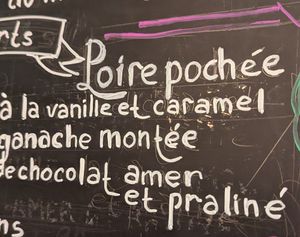 rts
Poire pochée
à la vanille et caramel
ganache montée
de chocolat amer
et praliné
ns